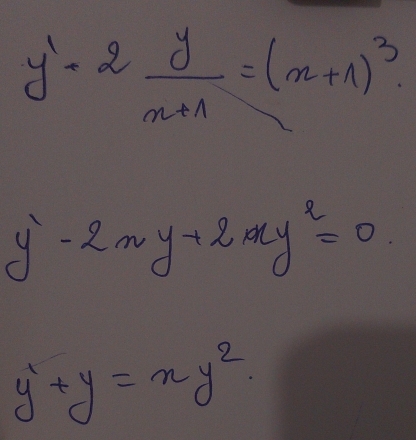 y' - 2 y/(x+1) = (x+1)^3.
y' - 2xy + 2xy^2 = 0.
y' + y = xy^2.